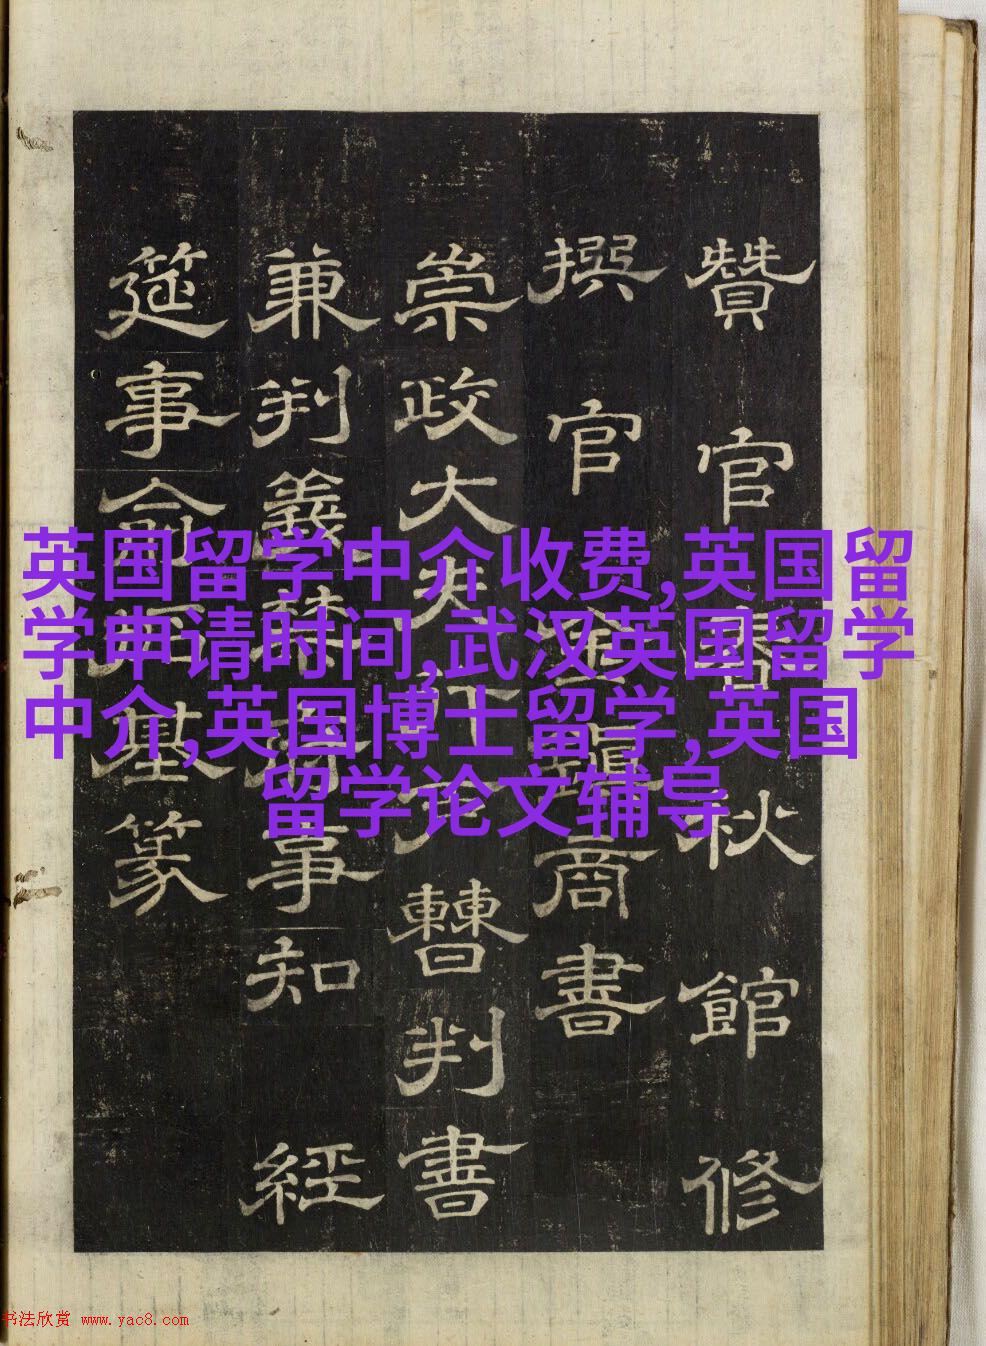 英国留学中介收费,英国留
学申请时间,武汉英国留学
中介,英国博士留学,英国
留学论文辅导
贊官春秋館修
撰官金商書
崇政大夫行曹判書
兼判義禁府事知經
筵事俞拓基篆
书法欣赏 www.yac8.com